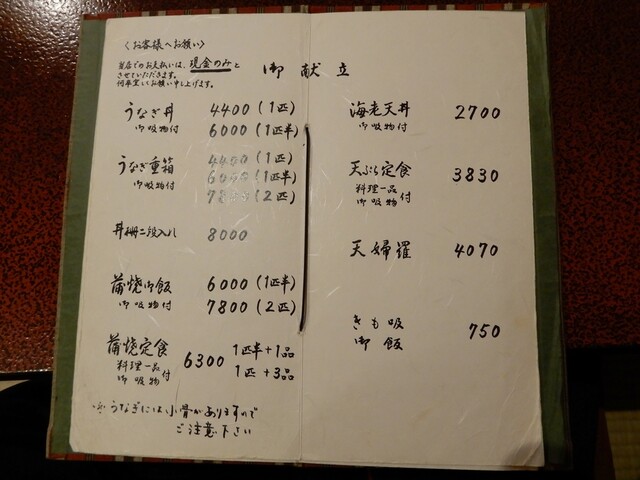 〈お客様へお願い〉
当店でのお支払いは、現金のみと
させていただきます。
何卒宜しくお願い申し上げます。
御献立
うなぎ丼 4400(1匹)
御吸物付 6000(1匹半)
うなぎ重箱 4400(1匹)
御吸物付 6000(1匹半)
7800(2匹)
丼柵二段入れ 8000
蒲焼御飯 6000(1匹半)
御吸物付 7800(2匹)
蒲焼定食 6300 1匹半+1品
料理一品 1匹+3品
御吸物付
※うなぎには小骨がありますので
ご注意下さい
海老天丼 2700
御吸物付
天ぷら定食 3830
料理一品
御吸物付
天婦羅 4070
きも吸 750
御飯